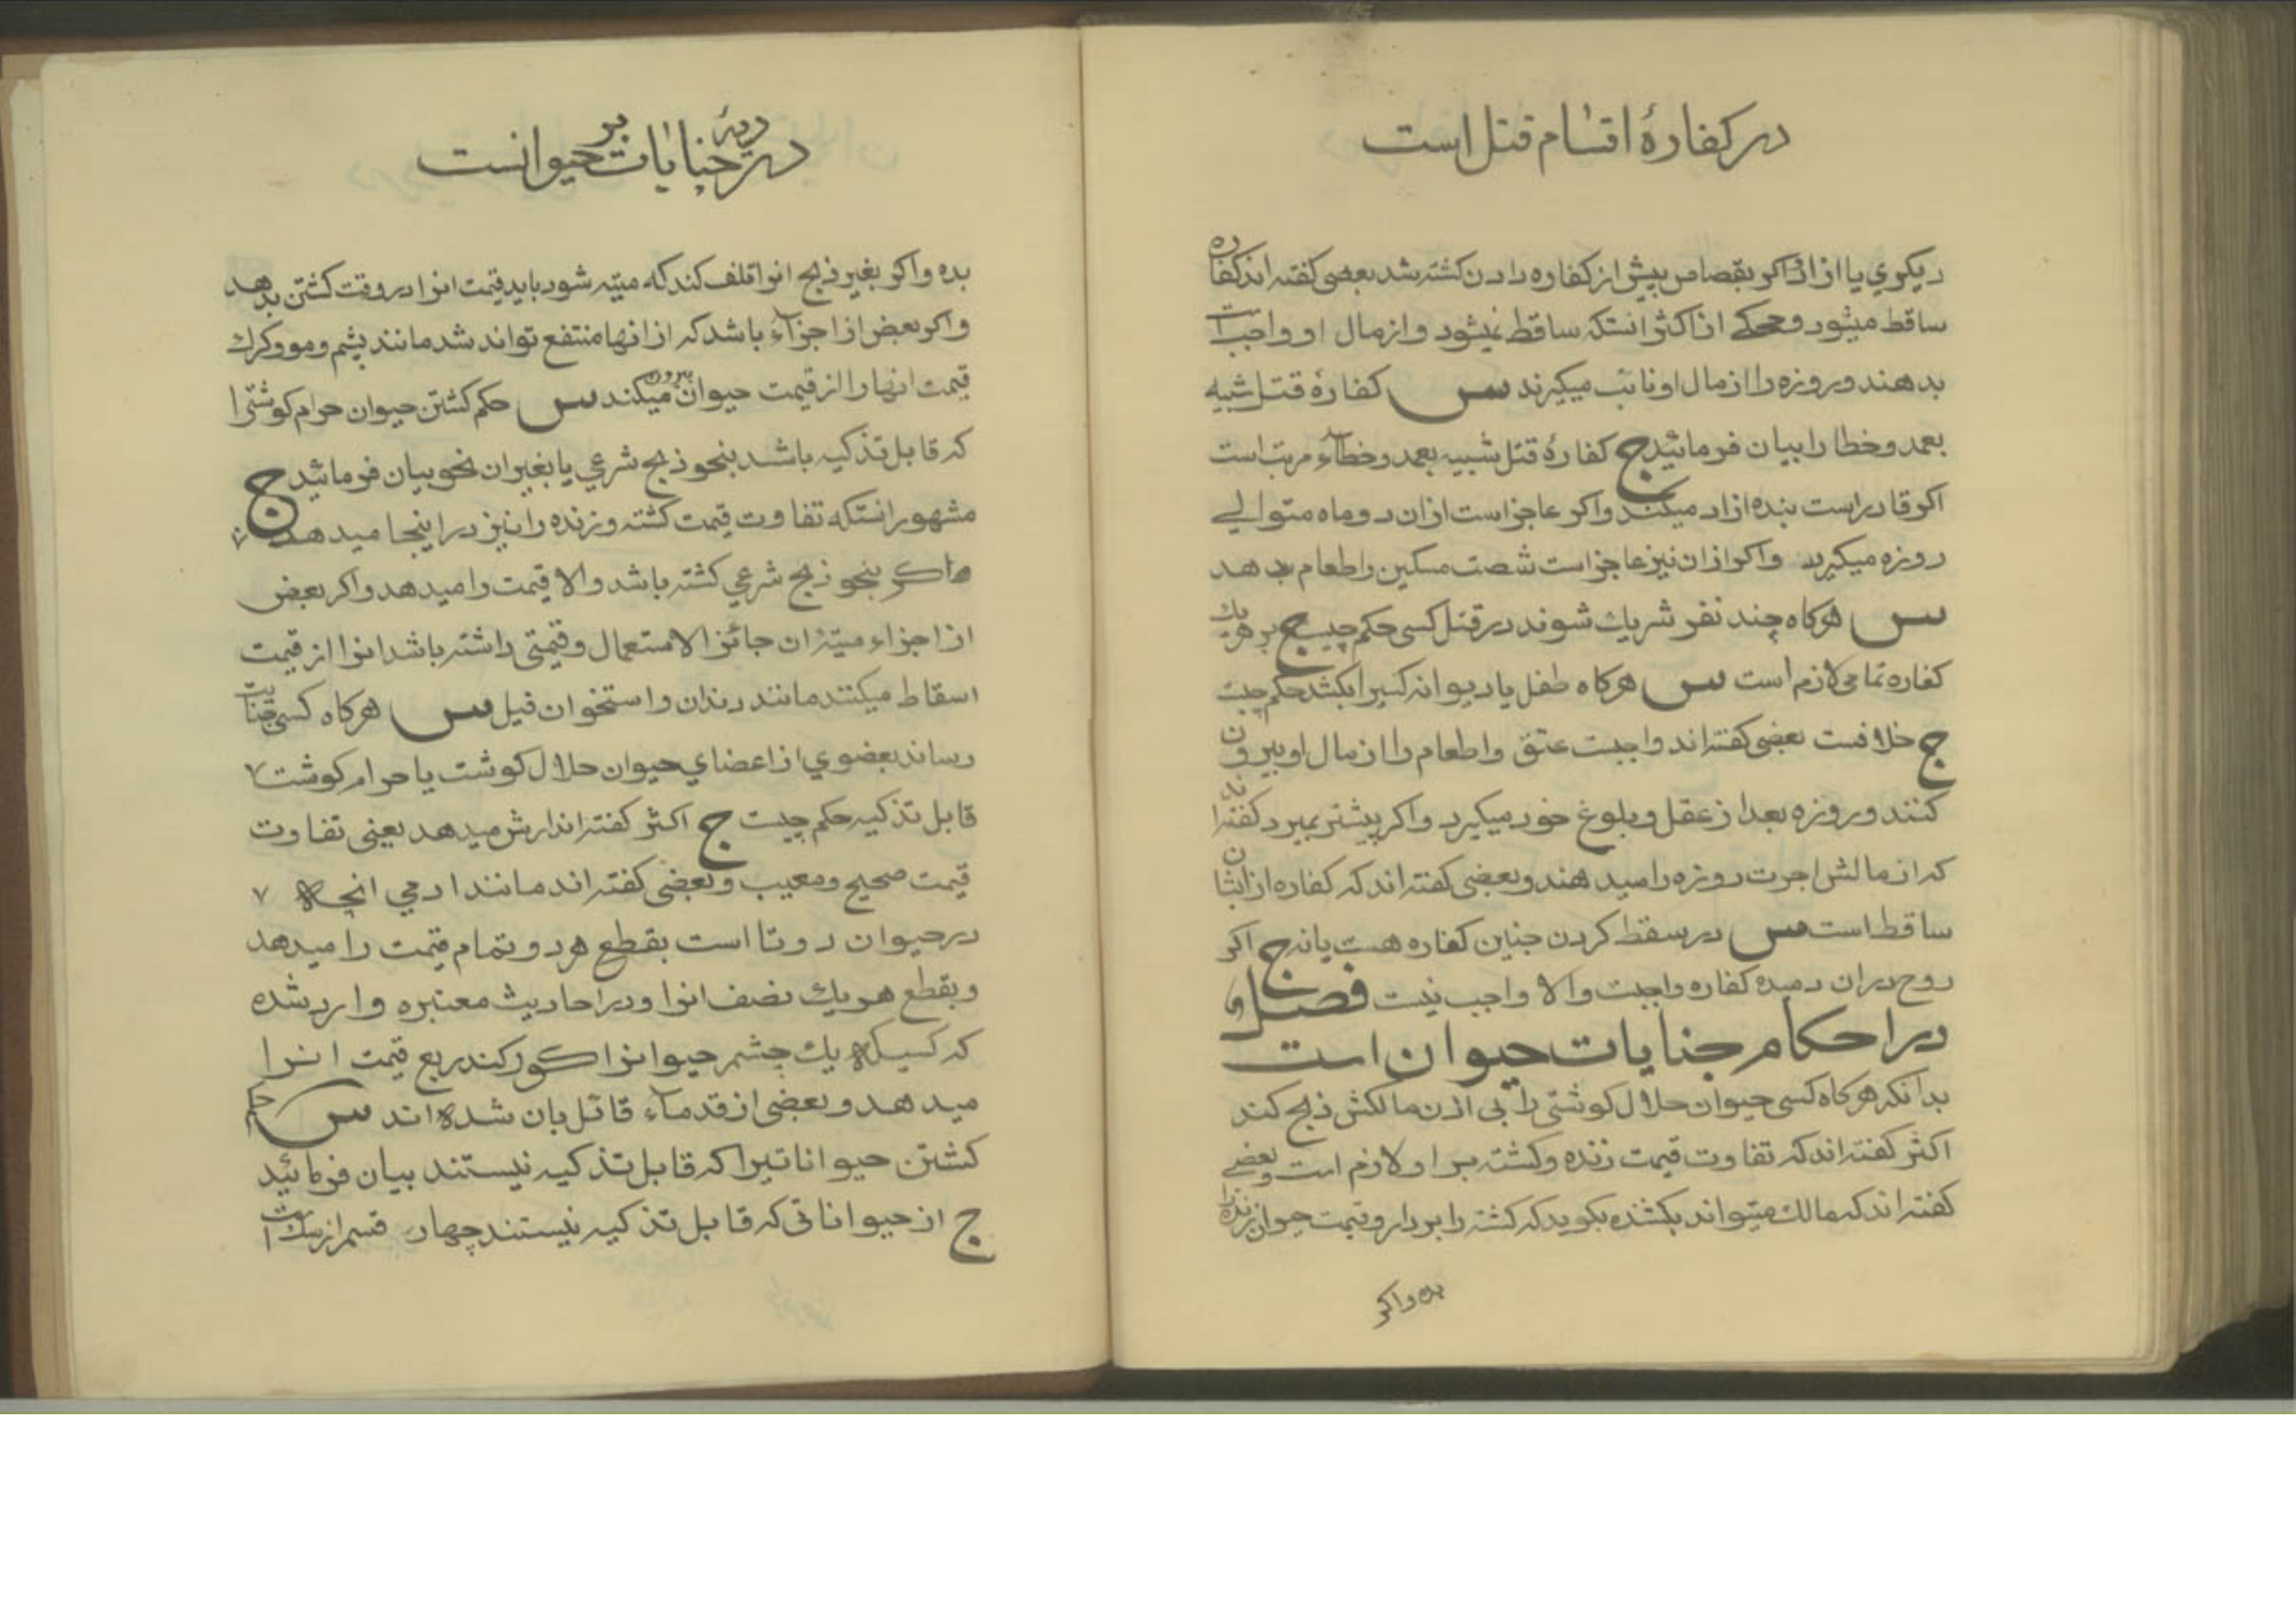 در کفارهٔ اقسام قتل است
دیکری یا از او اکر بقصاص پیش از کفاره دادن کشته شد بعضی کفته اند کفاره
ساقط میشود و محکی از اکثر انستکه ساقط نمیشود و از مال او واجب است
بدهند و روزه را از مال او نائب میکیرند س کفارهٔ قتل شبیه
بعمد و خطا را بیان فرمائید ج کفارهٔ قتل شبیه بعمد و خطاء مرتب است
اکر قادر است بنده ازاد میکند و اکر عاجز است از ان دو ماه متوالی
روزه میکیرد و اکر از ان نیز عاجز است شصت مسکین را طعام بدهد
س هرکاه چند نفر شریک شوند در قتل کسی حکم چیست ج بر هر یک
کفاره تمامی لازم است س هرکاه طفل یا دیوانه کسیرا بکشد حکم چیست
ج خلافست بعضی کفته اند واجبست عتق و اطعام را از مال او بیرون
کنند و روزه بعد از عقل و بلوغ خود میکیرد و اکر پیشتر بمیرد کفته اند
که از مالش اجرت روزه را میدهند و بعضی کفته اند که کفاره از ایشان
ساقط است س در سقط کردن جنین کفاره هست یا نه ج اکر
روح در ان دمیده کفاره واجبست و الا واجب نیست فصل
در احکام جنایات حیوان است
بدانکه هرکاه کسی حیوان حلال کوشتی را بی اذن مالکش ذبح کند
اکثر کفته اند که تفاوت قیمت زنده و کشته بر او لازم است و بعضی
کفته اند که مالک میتواند بکشنده بکوید که کشته را بردار و قیمت حیوان زنده را
بده و اکر
در دیهٔ جنایات بر حیوانست
بده و اکر بغیر ذبح انرا تلف کند که میته شود باید قیمت انرا در وقت کشتن بدهد
و اکر بعض از اجزاء باشد که از انها منتفع تواند شد مانند پشم و مو و کرک
قیمت انها را از قیمت حیوان بیرون میکند س حکم کشتن حیوان حرام کوشترا
که قابل تذکیه باشد بنحو ذبح شرعی یا بغیر ان نحو بیان فرمائید ج
مشهور انستکه تفاوت قیمت کشته و زنده را نیز در اینجا میدهد
اکر بنحو ذبح شرعی کشته باشد والا قیمت را میدهد و اکر بعض
از اجزاء میتهٔ ان جائز الاستعمال و قیمتی داشته باشد انرا از قیمت
اسقاط میکنند مانند دندان و استخوان فیل س هرکاه کسی جنایت
رساند بعضوی از اعضای حیوان حلال کوشت یا حرام کوشت
قابل تذکیه حکم چیست ج اکثر کفته اند ارش میدهد یعنی تفاوت
قیمت صحیح و معیب و بعضی کفته اند مانند ادمی انچه
در حیوان دوتا است بقطع هر دو تمام قیمت را میدهد
و بقطع هر یک نصف انرا و در احادیث معتبره وارد شده
که کسیکه یک چشم حیوانرا کور کند ربع قیمت انرا
میدهد و بعضی از قدماء قائل بان شده اند س حکم
کشتن حیواناتیرا که قابل تذکیه نیستند بیان فرمائید
ج از حیواناتی که قابل تذکیه نیستند چهار قسم از سک است